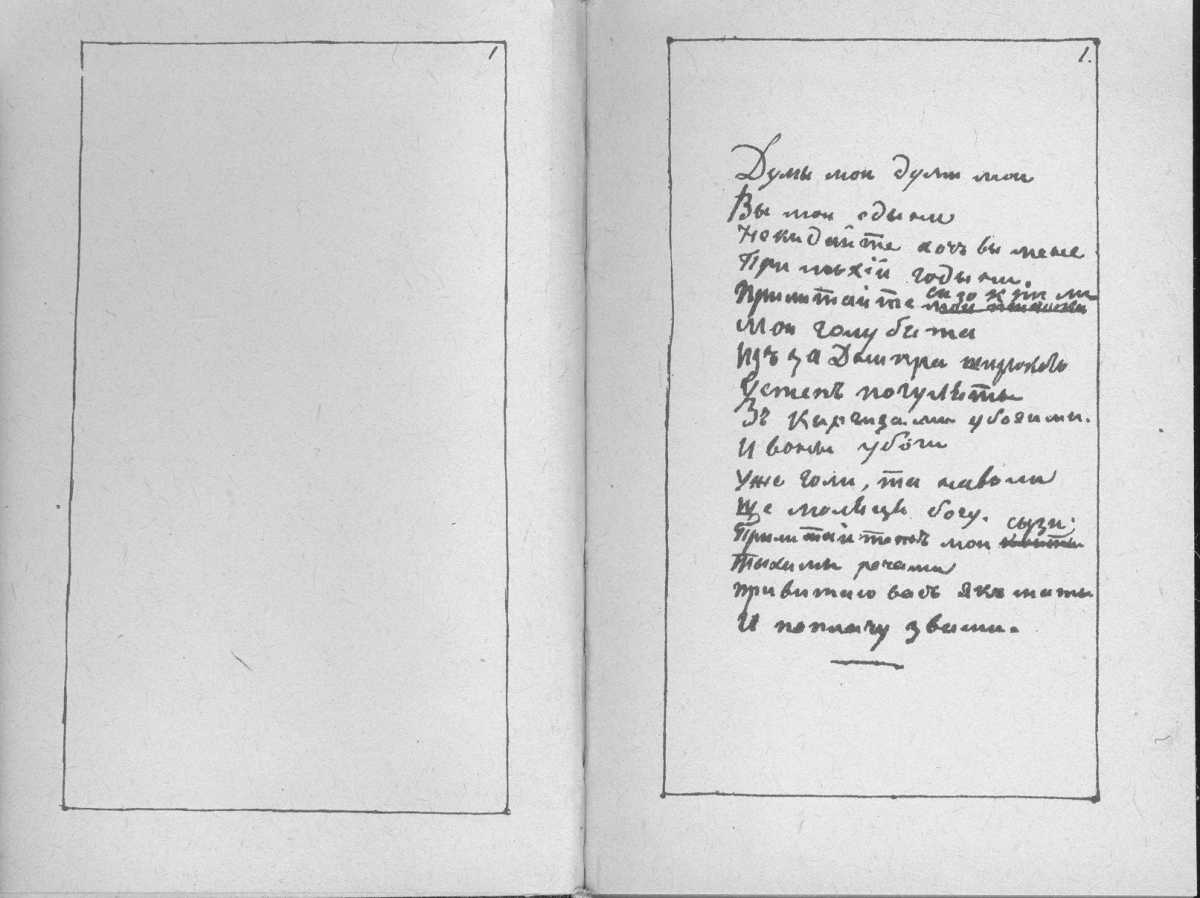 1
1.
Думы мои думы мои
Вы мои едыни
Некидайте хочъ вы мене
При лыхій годыни.
сизокрили
Прилитайте мои
Мои голубята
Изъ за Днипра широкого
Устепъ погуляты
Зъ Киргизами убогими.
И воны убоги
Уже голи, та наволи
Ще моляця богу.
сызи;
Прилитайтежъ мои
Тыхими речами
Привитаю васъ якъ маты
И поплачу звами.